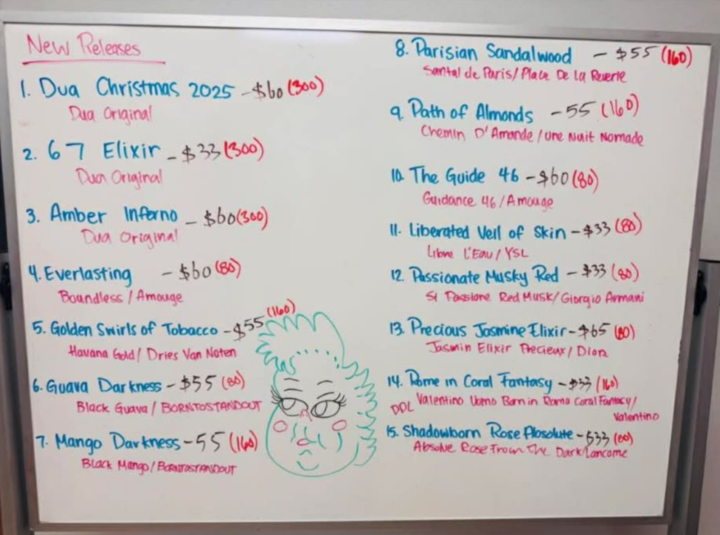 New Releases
1. Dua Christmas 2025 - $60 (300)
Dua Original
2. 67 Elixir - $33 (300)
Dua Original
3. Amber Inferno - $60 (300)
Dua Original
4. Everlasting - $60 (80)
Boundless / Amouge
5. Golden Swirls of Tobacco - $55 (160)
Havana Gold / Dries Van Noten
6. Guava Darkness - $55 (80)
Black Guava / BORNTOSTANDOUT
7. Mango Darkness - 55 (160)
Black Mango / BORNTOSTANDOUT
8. Parisian Sandalwood - $55 (160)
Santal de Paris / Place De La
9. Path of Almonds - 55 (160)
Chemin D'Amande / Une Nuit Nomade
10. The Guide 46 - $60 (80)
Guidance 46 / Amouge
11. Liberated Veil of Skin - $33 (80)
Libre L'Eau / YSL
12. Passionate Musky Red - $33 (80)
Si Passione Red Musk / Giorgio Armani
13. Precious Jasmine Elixir - $65 (80)
Jasmin Elixir Precieux / Dior
14. Rome in Coral Fantasy - $33 (160)
DDL Valentino Uomo Born in Roma Coral Fantasy /
Valentino
15. Shadowborn Rose Absolute - $33 (80)
Absolue Rose From The Dark / Lancome